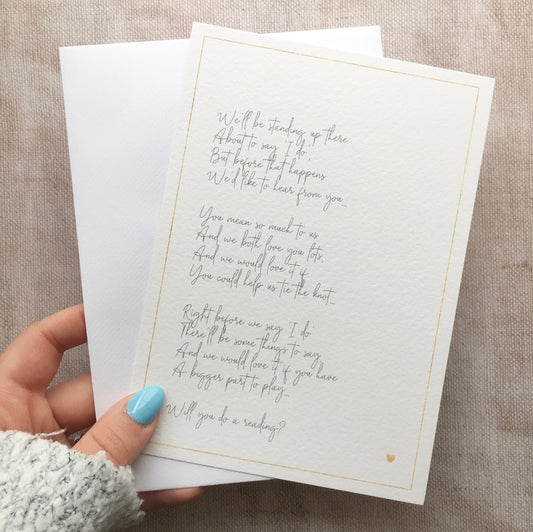 We'll be standing up there
About to say 'I do'
But before that happens
We'd like to hear from you_
You mean so much to us
And we both love you lots,
And we would love it if
You could help us tie the knot_
Right before we say 'I do'
There'll be some things to say
And we would love it if you have
A bigger part to play_
Will you do a reading?